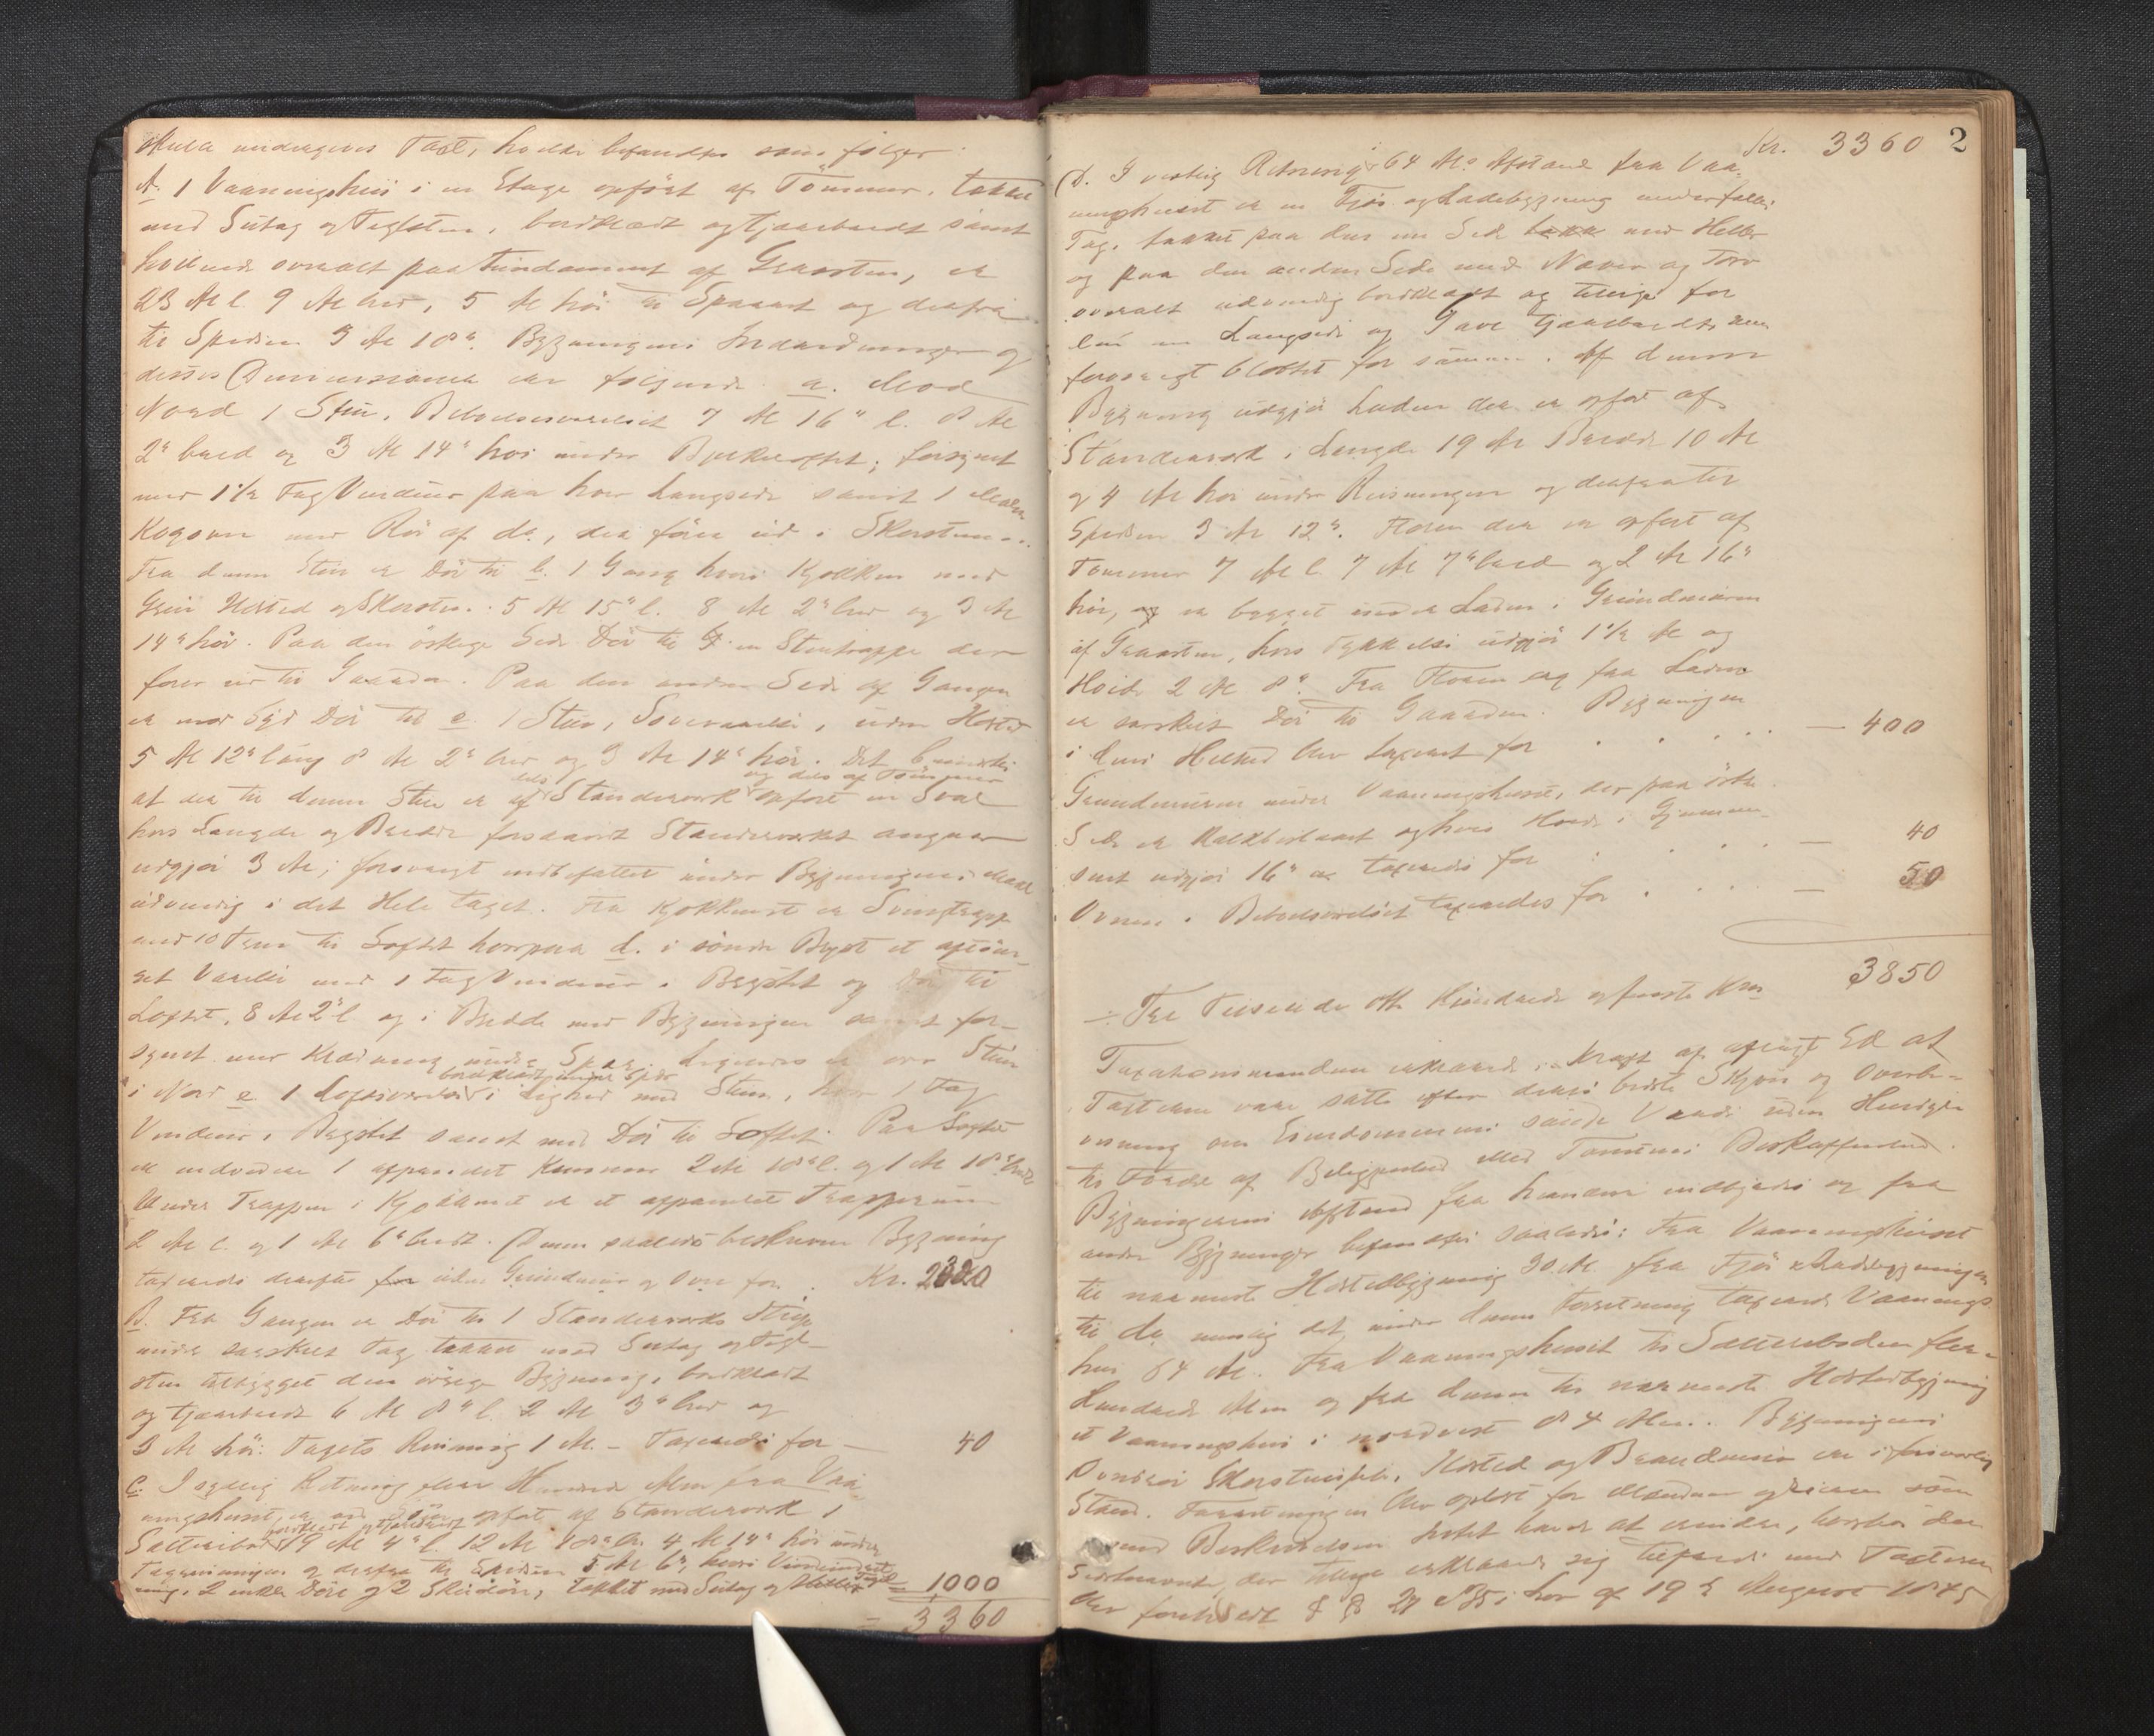 skulde undergives Taxt, hvilke befandtes som følger
A. 1 Vaaningshus i en Etage opført af Tømmer, takket
med Sutag og Teglsten, bordklædt og tjærebredt samt
hvilende overalt paa Fundament af Graasten, er
23 Al l. 9 Al bred, 5 Al høi til Sparret og derfra
til Spidsen 3 Al 18". Bygningens Indredninger og
desses Dimensioner er følgende a. Mod
Nord 1 Stue, Beboelsesværelset 7 Al 16" l. 8 Al
2" bred og 3 Al 14" høi under Bjelkeloftet; forsynet
med 1½ Fag Vinduer paa hver Langside samt 1
Kogovn med Rør af do, der fører ud i Skorstenen.
Fra denne Stue er Dør til b. 1 Gang hvori Kjøkken med
Grue Ildsted og Skorsten 5 Al 15" l. 8 Al 2" bred og 3 Al
14" høi. Paa den østlige Side Dør til en Stentrappe der
fører ud til Gaarden. Paa den anden Side af Gangen
er mod Syd Dør til c. 1 Stue, Soveværelse, uden Ildsted
5 Al 12" lang 8 Al 2" bred og 3 Al 14" høi. Det bemærkes
at der til denne Stue er dels af Standerværk og dels af Tømmer opført en Sval
hvis Længde og Bredde forsaavidt Standerværket angaar
udgjør 3 Al; forøvrigt indbefattet under Bygningens Maal
udvendig i det Hele taget. Fra Kjøkkenet er Svingtrappe
med 10 Trin til Loftet hvorpaa d. i søndre Bryst et
Værelse med 1 Fag Vinduer i Brystet og Dør til
Loftet, 8 Al 2" l og i Bredde med Bygningen samt for-
synet med Klædning under Spær. Ligeledes er over Stuen
i Nord e 1 Loftsværelse bordklædt under Spær i Lighed med Stuen, hvor 1 Fag
Vinduer i Brystet samt med Dør til Loftet. Paa Loftet
er endvidere 1 appaneelet Kammer 2 Al 18" l. og 1 Al 18" bredt
Under Trappen i Kjøkkenet er et appaneelet Trapperum
2 Al l. og 1 Al 6" bredt. Denne saaledes beskrevne Bygning
taxeredes derefter for uden Grundmur og Ovn for . Kr. 2320
B. Fra Gangen er Dør til 1 Standerværks
under særskilt Tag takket med Sutag og Tegl-
sten tilbygget den øvrige Bygning, bordklædt
og tjærebredt 6 Al 8" l. 2 Al 3" bred og
3 Al høi: Tagets Reisning 1 Al. – Taxeredes for — 40
C. I sydlig Retning flere Hundrede Alen fra Vaa-
ningshuset, er ved Søen opført af Standerværk 1
Saltebod bordklædt og tjærebredt 19 Al 4" l. 12 Al 18" br. 4 Al 14" høi under
Tagreisningen og derfra til Spidsen 5 Al 6", hvori
2 enkle Døre og 2 Skudører, takket med Sutag og Tegl — 1000
— 3360
Kr. 3360 2
D. I vestlig Retning i 64 Al. Afstand fra Vaa-
ningshuset er en Fjøs- og Ladebygning under fælles
Tag, takket paa den ene Side med Heller
og paa den anden Side med Næver og Torv
overalt udvendig bordklædt og tillige for
den ene Langside og Gavl tjærebredt, men
forøvrigt blottet for samme. Af denne
Bygning udgjør Laden der er opført af
Standerværk i Længde 19 Al Bredde 10 Al
og 4 Al høi under Reisningen og derfra til
Spidsen 3 Al 12". Floren der er opført af
Tømmer 7 Al l. 7 Al 7" bred og 2 Al 16"
høi, og er bygget under Laden i Grundmuren
af Graasten, hvis Tykkelse udgjør 1½ Al og
Høide 2 Al 8". Fra Floren og fra Laden
er særskilt Dør til Gaarden. Bygningen
i dens Helhed blev taxeret for . . . . . — 400
Grundmuren under Vaaningshuset, der paa østre
Side er kalkbeslaaet og hvis Høide i Gjennem-
snit udgjør 16" er taxeredes for . . . . — 40
Ovnen i Beboelsesværelset taxeredes for . . . . — 50
3850
÷ Tre Tusende Otte Hundrede og femti Kroner
Taxationsmændene erklærede i Kraft af aflagt Ed at
Taxterne vare satte efter deres bedste Skjøn og Overbe-
visning om Eiendommenes sande Værdi uden Hensyn
til Fordel af Beliggenhed eller Tomtens Beskaffenhed.
Bygningernes Afstand fra hverandre indbyrdes og fra
andre Bygninger befandtes saaledes: Fra Vaaningshuset
til nærmeste Ildstedbygning 30 Al fra Fjøs & Ladebygningen
til do nemlig det under denne Forretning taxerede Vaanings-
hus 64 Al. Fra Vaaningshuset til Salteboden flere
Hundrede Alen og fra denne til nærmeste Ildstedbygning
et Vaaningshus i nordvest 84 Alen. Bygningens
Ovnsrør Skorstenspibe, Ildsted og Brandmur er i forsvarlig
Stand. Forretningen blev oplæst for Mændene og Eieren som
ved Beskrivelsen Intet havde at erindre, hvorhos den
Sidstnævnte, der tillige erklærede sig tilfreds med Taxterne
blev foreholdt § § 27 & 35 i Lov af 19de August 1845